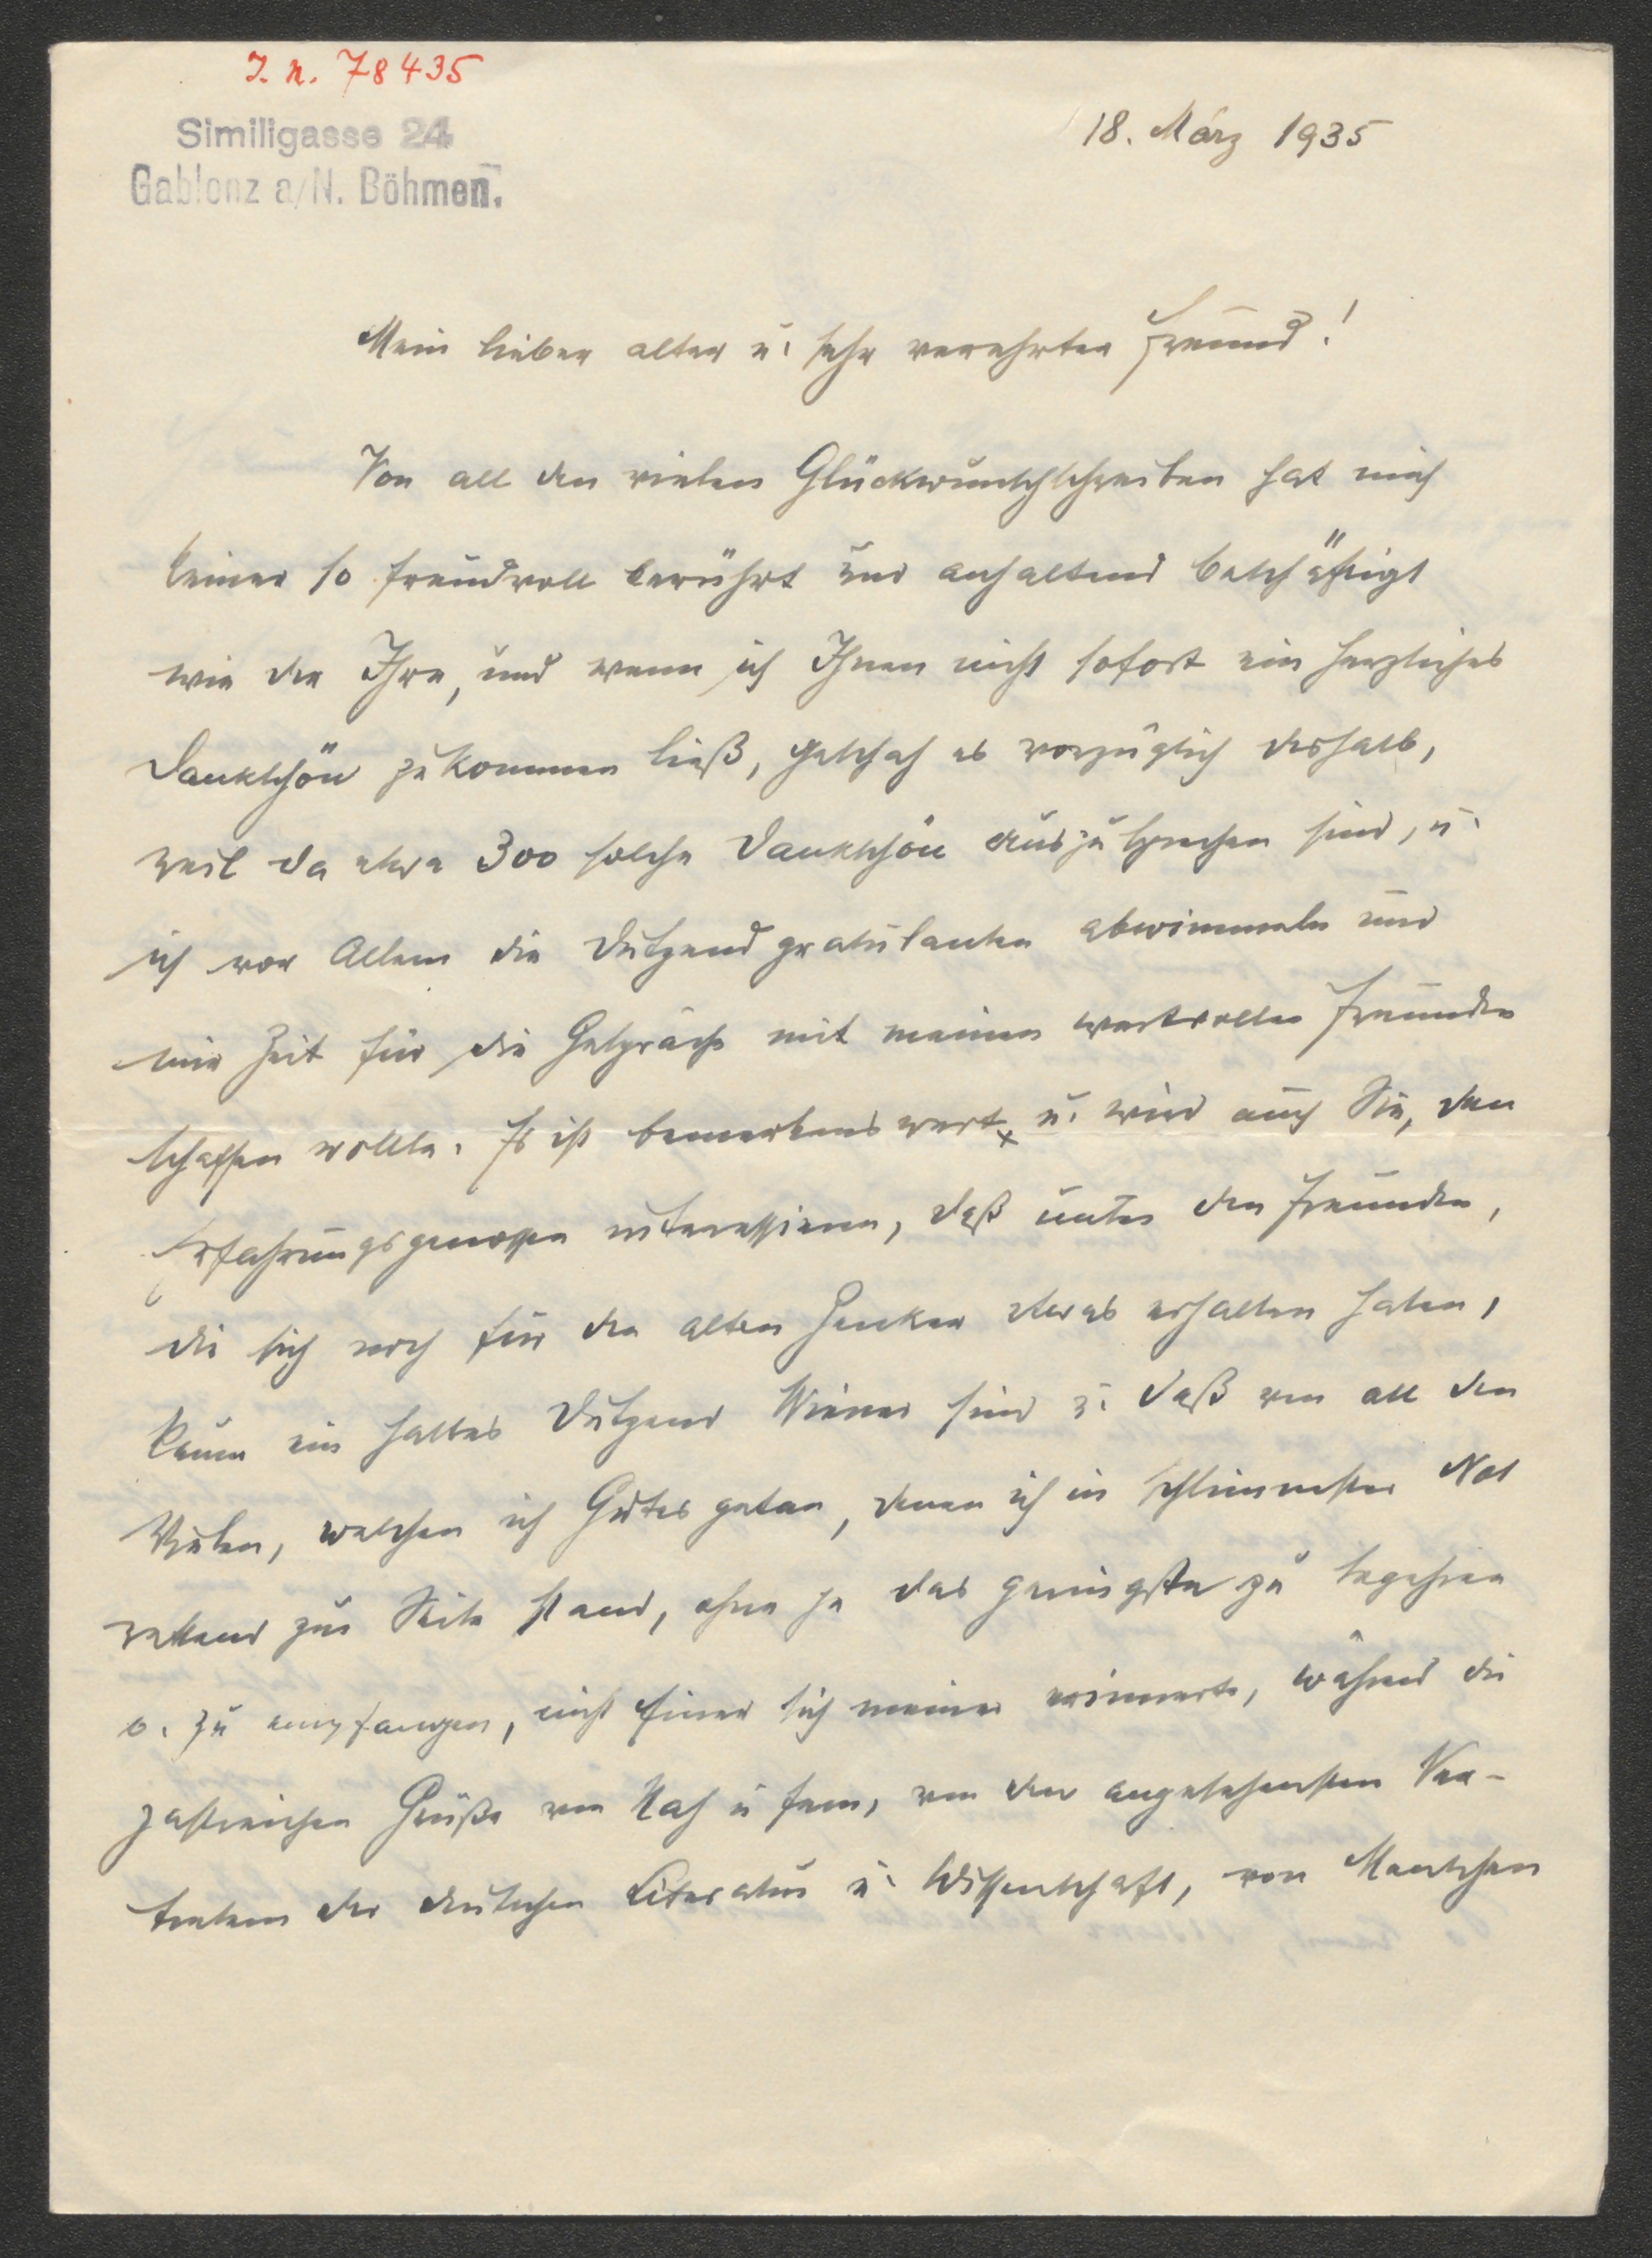 J. N. 78435
Similigasse 24
Gablonz a/N. Böhmen.
18. März 1935
Mein lieber alter u. sehr verehrter Freund!
Von all den vielen Glückwunschschreiben hat mich
keines so freudvoll berührt und anhaltend beschäftigt
wie der Ihre, und wenn ich Ihnen nicht sofort ein herzliches
Dankschön zukommen ließ, geschah es vorzüglich deshalb,
weil da etwa 300 solche Dankschön auszusprechen sind, u.
ich vor Allem die Dutzendgratulanten abwimmeln und
mir Zeit für die Gespräche mit meinen wertvollen Freunden
schaffen wollte. Es ist bemerkenswert u. wird auch Sie, den
Erfahrungsgenossen interessieren, daß unter den Freunden,
die sich noch für den alten Henker etwas erhalten haben,
kaum ein halbes Dutzend Wiener sind u. daß von all den
Vielen, welchen ich Gutes getan, denen ich in schlimmster Not
rettend zur Seite stand, ohne je das geringste zu begehren
o. zu empfangen, nicht Einer sich meiner erinnerte, während die
zahlreichen Grüße von Nah u fern, von den angesehensten Ver-
tretern der deutschen Literatur u. Wissenschaft, von Menschen